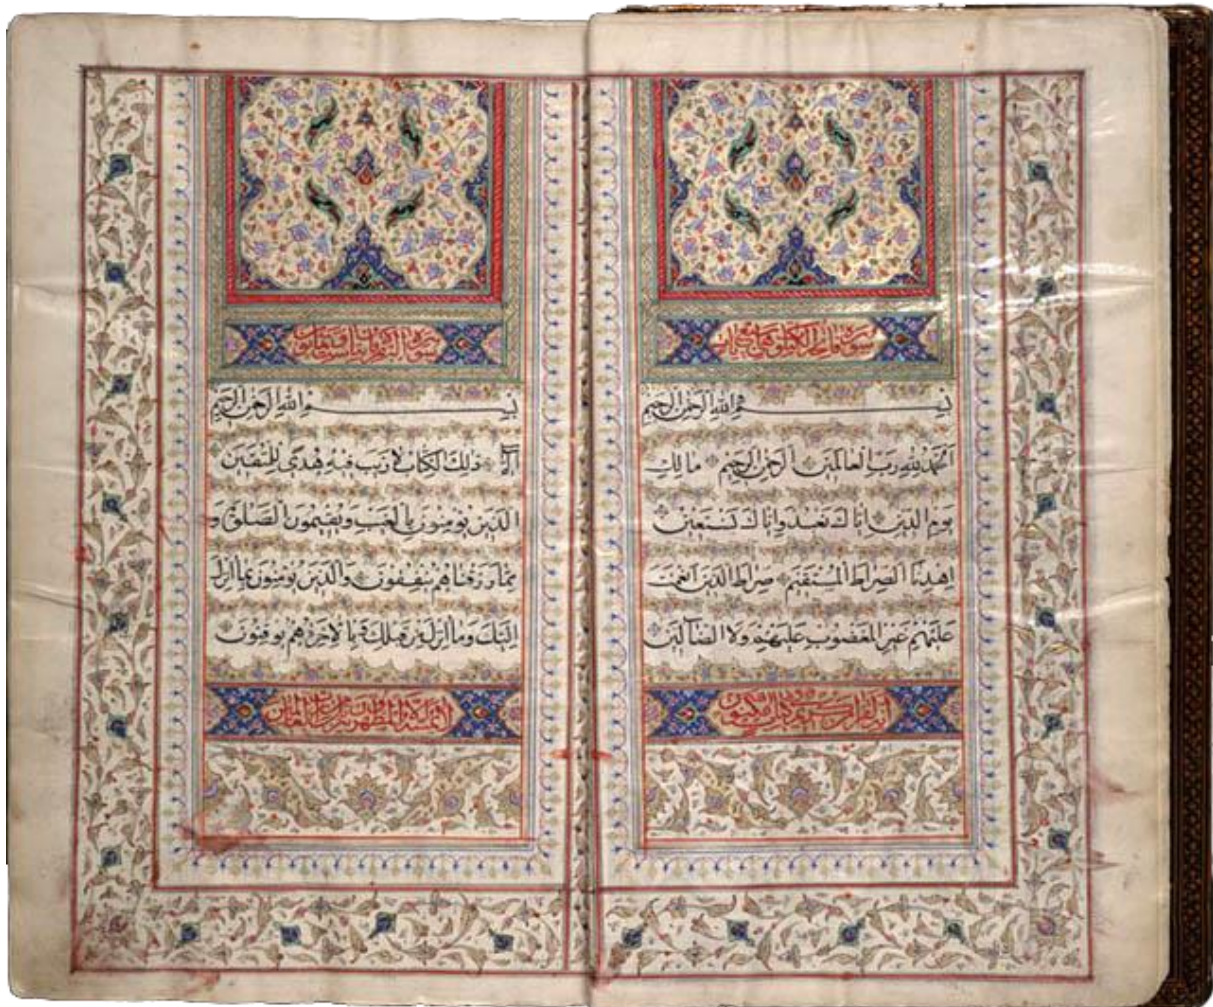 سورة فاتحة الكتاب وهي سبع آيات
بِسْمِ اللهِ الرَّحْمٰنِ الرَّحِيمِ
اَلْحَمْدُ لِلّٰهِ رَبِّ الْعَالَمِينَ اَلرَّحْمٰنِ الرَّحِيمِ مَالِكِ
يَوْمِ الدِّينِ اِيَّاكَ نَعْبُدُ وَاِيَّاكَ نَسْتَعِينُ
اِهْدِنَا الصِّرَاطَ الْمُسْتَقِيمَ صِرَاطَ الَّذِينَ اَنْعَمْتَ
عَلَيْهِمْ غَيْرِ الْمَغْضُوبِ عَلَيْهِمْ وَلَا الضَّالِّينَ
انه لقرآن كريم في كتاب مكنون
سورة البقرة
بِسْمِ اللهِ الرَّحْمٰنِ الرَّحِيمِ
الم ذٰلِكَ الْكِتَابُ لَا رَيْبَ فِيهِ هُدًى لِلْمُتَّقِينَ
اَلَّذِينَ يُومِنُونَ بِالْغَيْبِ وَيُقِيمُونَ الصَّلٰوةَ وَ
مِمَّا رَزَقْنَاهُمْ يُنْفِقُونَ وَالَّذِينَ يُومِنُونَ بِمَا اُنْزِلَ
اِلَيْكَ وَمَا اُنْزِلَ مِنْ قَبْلِكَ وَ بِالْاٰخِرَةِ هُمْ يُوقِنُونَ
لا يمسه الا المطهرون تنزيل من رب العالمين